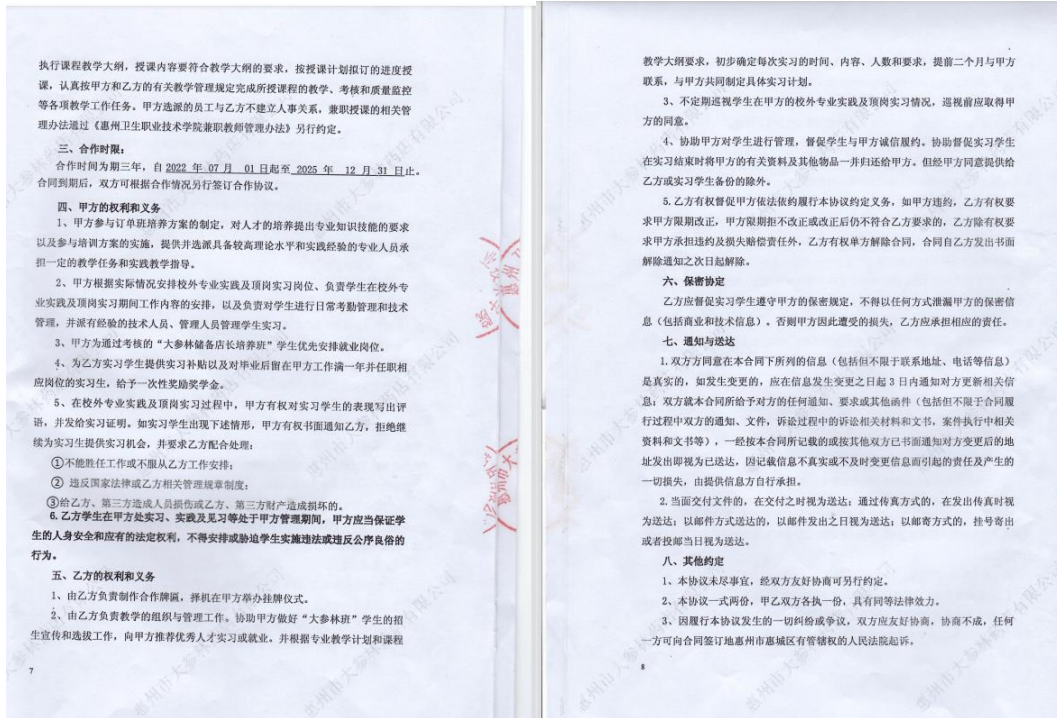 执行课程教学大纲，授课内容要符合教学大纲的要求，按授课计划拟订的进度授
课，认真按甲方和乙方的有关教学管理规定完成所授课程的教学、考核和质量监控
等各项教学工作任务。甲方选派的员工与乙方不建立人事关系，兼职授课的相关管
理办法通过《惠州卫生职业技术学院兼职教师管理办法》另行约定。
三、合作时限：
合作时间为期三年，自 2022 年 07 月 01 日起至 2025 年 12 月 31 日止。
合同到期后，双方可根据合作情况另行签订合作协议。
四、甲方的权利和义务
1、甲方参与订单班培养方案的制定，对人才的培养提出专业知识技能的要求
以及参与培训方案的实施，提供并选派具备较高理论水平和实践经验的专业人员承
担一定的教学任务和实践教学指导。
2、甲方根据实际情况安排校外专业实践及顶岗实习岗位、负责学生在校外专
业实践及顶岗实习期间工作内容的安排，以及负责对学生进行日常考勤管理和技术
管理，并派有经验的技术人员、管理人员管理学生实习。
3、甲方为通过考核的“大参林储备店长培养班”学生优先安排就业岗位。
4、为乙方实习学生提供实习补贴以及对毕业后留在甲方工作满一年并任职相
应岗位的实习生，给予一次性奖励奖学金。
5、在校外专业实践及顶岗实习过程中，甲方有权对实习学生的表现写出评
语，并发给实习证明。如实习学生出现下述情形，甲方有权书面通知乙方，拒绝继
续为实习生提供实习机会，并要求乙方配合处理：
①不能胜任工作或不服从乙方工作安排；
② 违反国家法律或乙方相关管理规章制度；
③给乙方、第三方造成人员损伤或乙方、第三方财产造成损坏的。
6. 乙方学生在甲方处实习、实践及见习等处于甲方管理期间，甲方应当保证学
生的人身安全和应有的法定权利，不得安排或胁迫学生实施违法或违反公序良俗的
行为。
五、乙方的权利和义务
1、由乙方负责制作合作牌匾，择机在甲方举办挂牌仪式。
2、由乙方负责教学的组织与管理工作。协助甲方做好“大参林班”学生的招
生宣传和选拔工作，向甲方推荐优秀人才实习或就业。并根据专业教学计划和课程
7
教学大纲要求，初步确定每次实习的时间、内容、人数和要求，提前二个月与甲方
联系，与甲方共同制定具体实习计划。
3、不定期巡视学生在甲方的校外专业实践及顶岗实习情况，巡视前应取得甲
方的同意。
4、协助甲方对学生进行管理，督促学生与甲方诚信履约。协助督促实习学生
在实习结束时将甲方的有关资料及其他物品一并归还给甲方。但经甲方同意提供给
乙方或实习学生备份的除外。
5.乙方有权督促甲方依法依约履行本协议约定义务，如甲方违约，乙方有权要
求甲方限期改正，甲方限期拒不改正或改正后仍不符合乙方要求的，乙方除有权要
求甲方承担违约及损失赔偿责任外，乙方有权单方解除合同，合同自乙方发出书面
解除通知之次日起解除。
六、保密协定
乙方应督促实习学生遵守甲方的保密规定，不得以任何方式泄漏甲方的保密信
息（包括商业和技术信息）。否则甲方因此遭受的损失，乙方应承担相应的责任。
七、通知与送达
1.双方方同意在本合同下所列的信息（包括但不限于联系地址、电话等信息）
是真实的，如发生变更的，应在信息发生变更之日起 3 日内通知对方更新相关信
息；双方就本合同所给予对方的任何通知、要求或其他函件（包括但不限于合同履
行过程中双方的通知、文件，诉讼过程中的诉讼相关材料和文书，案件执行中相关
资料和文书等），一经按本合同所记载的或按其他双方已书面通知对方变更后的地
址发出即视为已送达，因记载信息不真实或不及时变更信息而引起的责任及产生的
一切损失，由提供信息方自行承担。
2.当面交付文件的，在交付之时视为送达；通过传真方式的，在发出传真时视
为送达；以邮件方式送达的，以邮件发出之日视为送达；以邮寄方式的，挂号寄出
或者投邮当日视为送达。
八、其他约定
1、本协议未尽事宜，经双方友好协商可另行约定。
2、本协议一式两份，甲乙双方各执一份，具有同等法律效力。
3、因履行本协议发生的一切纠纷或争议，双方应友好协商，协商不成，任何
一方可向合同签订地惠州市惠城区有管辖权的人民法院起诉。
8